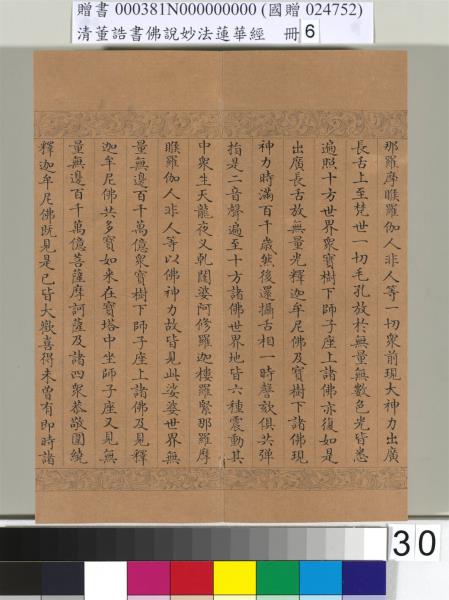 贈書 000381N000000000 (國贈 024752)
清董誥書佛說妙法蓮華經 冊 6
那羅摩睺羅伽人非人等一切衆前現大神力出廣
長舌上至梵世一切毛孔放於無量無數色光皆悉
遍照十方世界衆寶樹下師子座上諸佛亦復如是
出廣長舌放無量光釋迦牟尼佛及寶樹下諸佛現
神力時滿百千歲然後還攝舌相一時謦欬俱共彈
指是二音聲遍至十方諸佛世界地皆六種震動其
中衆生天龍夜叉乾闥婆阿修羅迦樓羅緊那羅摩
睺羅伽人非人等以佛神力故皆見此娑婆世界無
量無邊百千萬億衆寶樹下師子座上諸佛及見釋
迦牟尼佛共多寶如来在寶塔中坐師子座又見無
量無邊百千萬億菩薩摩訶薩及諸四衆恭敬圍繞
釋迦牟尼佛既見是已皆大歡喜得未曾有即時諸
30